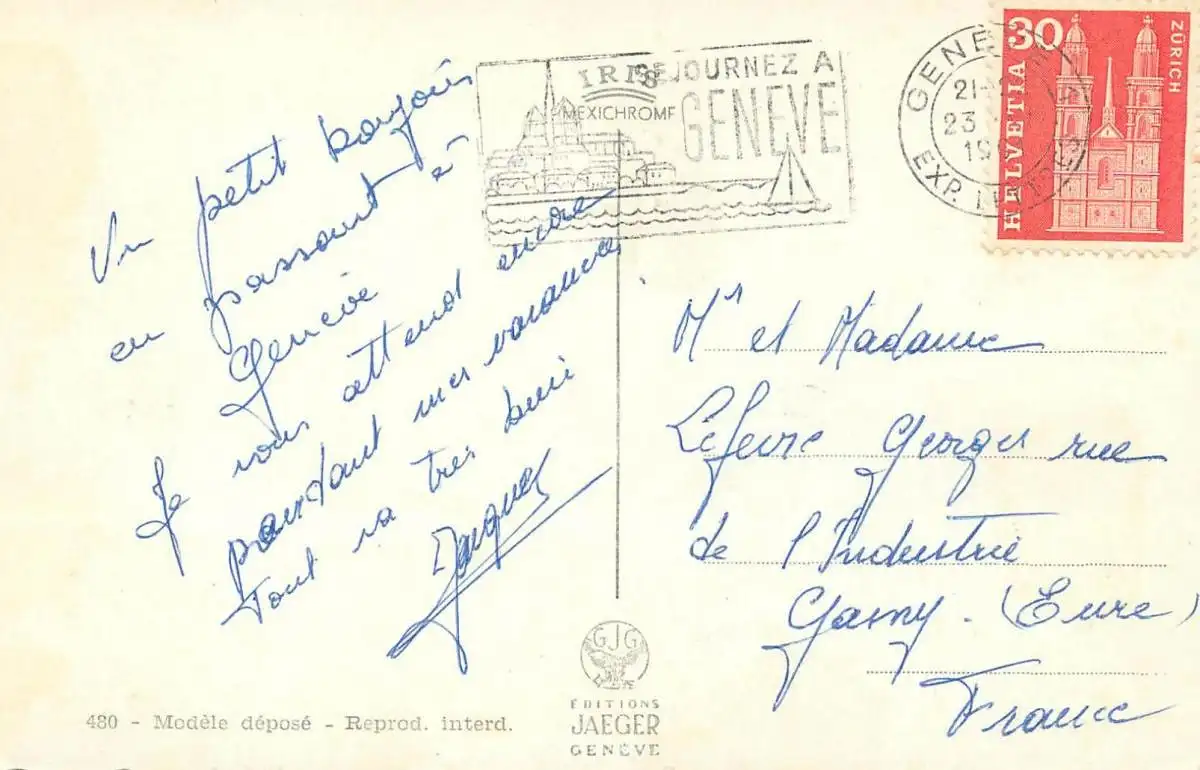 Un petit bonjour
en passant à
Genève
Je vous attend encore
pendant mes vacances
Tout va très bien
Jacques
IRIS
MEXICHROME
SEJOURNEZ A
GENEVE
GENEVE
21-
23
19
EXP.
30
HELVETIA
ZÜRICH
Mr et Madame
Lefevre Georges rue
de l'Industrie
Gasny. (Eure)
France
480 - Modèle déposé - Reprod. interd.
GJG
EDITIONS
JAEGER
GENÈVE